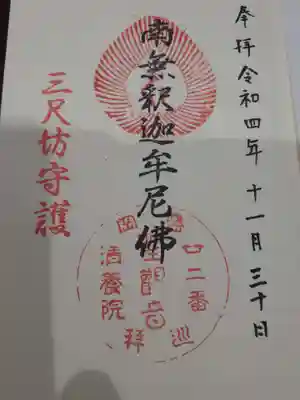 奉拝 令和四年 十一月 三十日
南無釈迦牟尼佛
三尺坊守護
廿二番
観音
清養院
巡拝